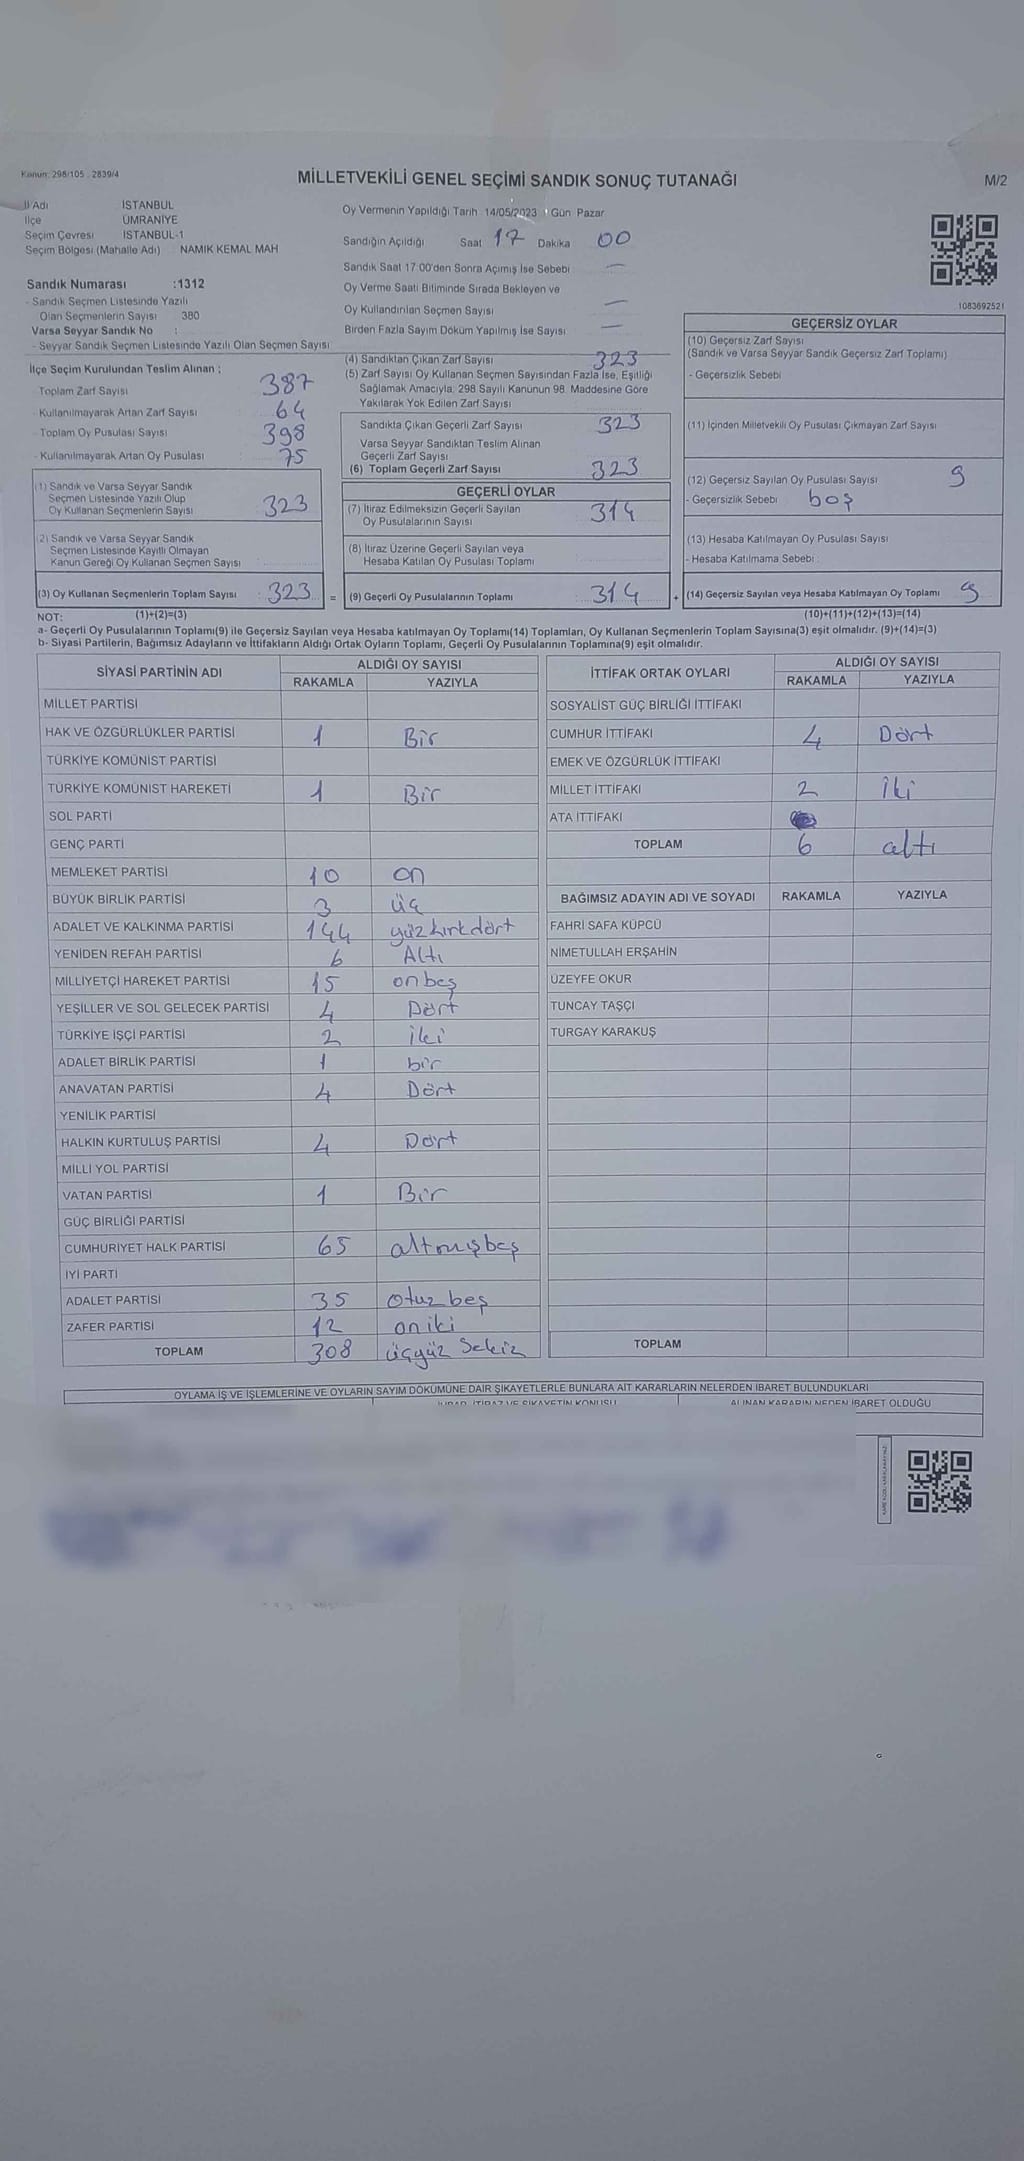 Kanun: 298/105 2839/4
MİLLETVEKİLİ GENEL SEÇİMİ SANDIK SONUÇ TUTANAĞI
M/2
İl Adı İSTANBUL
İlçe ÜMRANİYE
Seçim Çevresi İSTANBUL-1
Seçim Bölgesi (Mahalle Adı) NAMIK KEMAL MAH
Sandık Numarası :1312
- Sandık Seçmen Listesinde Yazılı
Olan Seçmenlerin Sayısı 380
Varsa Seyyar Sandık No :
- Seyyar Sandık Seçmen Listesinde Yazılı Olan Seçmen Sayısı
Oy Vermenin Yapıldığı Tarih 14/05/2023 Gün Pazar
Sandığın Açıldığı Saat 17 Dakika 00
Sandık Saat 17:00'den Sonra Açımış İse Sebebi —
Oy Verme Saati Bitiminde Sırada Bekleyen ve
Oy Kullandırılan Seçmen Sayısı —
Birden Fazla Sayım Döküm Yapılmış İse Sayısı —
1083692521
İlçe Seçim Kurulundan Teslim Alınan ;
- Toplam Zarf Sayısı 387
- Kullanılmayarak Artan Zarf Sayısı 64
- Toplam Oy Pusulası Sayısı 398
- Kullanılmayarak Artan Oy Pusulası 75
(1) Sandık ve Varsa Seyyar Sandık
Seçmen Listesinde Yazılı Olup
Oy Kullanan Seçmenlerin Sayısı 323
(2) Sandık ve Varsa Seyyar Sandık
Seçmen Listesinde Kayıtlı Olmayan
Kanun Gereği Oy Kullanan Seçmen Sayısı
(3) Oy Kullanan Seçmenlerin Toplam Sayısı : 323 =
(4) Sandıktan Çıkan Zarf Sayısı 323
(5) Zarf Sayısı Oy Kullanan Seçmen Sayısından Fazla İse, Eşitliği
Sağlamak Amacıyla, 298 Sayılı Kanunun 98. Maddesine Göre
Yakılarak Yok Edilen Zarf Sayısı
Sandıkta Çıkan Geçerli Zarf Sayısı 323
Varsa Seyyar Sandıktan Teslim Alınan
Geçerli Zarf Sayısı
(6) Toplam Geçerli Zarf Sayısı 323
GEÇERLİ OYLAR
(7) İtiraz Edilmeksizin Geçerli Sayılan
Oy Pusulalarının Sayısı 314
(8) İtiraz Üzerine Geçerli Sayılan veya
Hesaba Katılan Oy Pusulası Toplamı
(9) Geçerli Oy Pusulalarının Toplamı 314 +
GEÇERSİZ OYLAR
(10) Geçersiz Zarf Sayısı
(Sandık ve Varsa Seyyar Sandık Geçersiz Zarf Toplamı)
- Geçersizlik Sebebi
(11) İçinden Milletvekili Oy Pusulası Çıkmayan Zarf Sayısı
(12) Geçersiz Sayılan Oy Pusulası Sayısı 9
- Geçersizlik Sebebi boş
(13) Hesaba Katılmayan Oy Pusulası Sayısı
- Hesaba Katılmama Sebebi :
(14) Geçersiz Sayılan veya Hesaba Katılmayan Oy Toplamı 9
NOT: (1)+(2)=(3) (10)+(11)+(12)+(13)=(14)
a- Geçerli Oy Pusulalarının Toplamı(9) ile Geçersiz Sayılan veya Hesaba katılmayan Oy Toplamı(14) Toplamları, Oy Kullanan Seçmenlerin Toplam Sayısına(3) eşit olmalıdır. (9)+(14)=(3)
b- Siyasi Partilerin, Bağımsız Adayların ve İttifakların Aldığı Ortak Oyların Toplamı, Geçerli Oy Pusulalarının Toplamına(9) eşit olmalıdır.
SİYASİ PARTİNİN ADI ALDIĞI OY SAYISI
RAKAMLA YAZIYLA
MİLLET PARTİSİ
HAK VE ÖZGÜRLÜKLER PARTİSİ 1 Bir
TÜRKİYE KOMÜNİST PARTİSİ
TÜRKİYE KOMÜNİST HAREKETİ 1 Bir
SOL PARTİ
GENÇ PARTİ
MEMLEKET PARTİSİ 10 on
BÜYÜK BİRLİK PARTİSİ 3 üç
ADALET VE KALKINMA PARTİSİ 144 yüzkırkdört
YENİDEN REFAH PARTİSİ 6 Altı
MİLLİYETÇİ HAREKET PARTİSİ 15 onbeş
YEŞİLLER VE SOL GELECEK PARTİSİ 4 Dört
TÜRKİYE İŞÇİ PARTİSİ 2 iki
ADALET BİRLİK PARTİSİ 1 bir
ANAVATAN PARTİSİ 4 Dört
YENİLİK PARTİSİ
HALKIN KURTULUŞ PARTİSİ 4 Dört
MİLLİ YOL PARTİSİ
VATAN PARTİSİ 1 Bir
GÜÇ BİRLİĞİ PARTİSİ
CUMHURİYET HALK PARTİSİ 65 altmışbeş
İYİ PARTİ
ADALET PARTİSİ 35 otuz beş
ZAFER PARTİSİ 12 oniki
TOPLAM 308 üçyüz Sekiz
İTTİFAK ORTAK OYLARI ALDIĞI OY SAYISI
RAKAMLA YAZIYLA
SOSYALİST GÜÇ BİRLİĞİ İTTİFAKI
CUMHUR İTTİFAKI 4 Dört
EMEK VE ÖZGÜRLÜK İTTİFAKI
MİLLET İTTİFAKI 2 İki
ATA İTTİFAKI
TOPLAM 6 altı
BAĞIMSIZ ADAYIN ADI VE SOYADI RAKAMLA YAZIYLA
FAHRİ SAFA KÜPCÜ
NİMETULLAH ERŞAHİN
ÜZEYFE OKUR
TUNCAY TAŞÇI
TURGAY KARAKUŞ
TOPLAM
OYLAMA İŞ VE İŞLEMLERİNE VE OYLARIN SAYIM DÖKÜMÜNE DAİR ŞİKAYETLERLE BUNLARA AİT KARARLARIN NELERDEN İBARET BULUNDUKLARI
İTİRAZ VE ŞİKAYETİN KONUSU ALINAN KARARIN NEDEN İBARET OLDUĞU